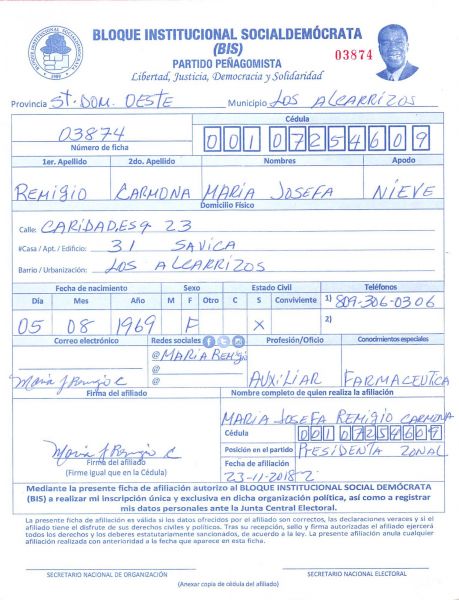 BLOQUE INSTITUCIONAL SOCIALDEMÓCRATA
(BIS)
PARTIDO PEÑAGOMISTA
Libertad, Justicia, Democracia y Solidaridad
03874
BLOQUE INSTITUCIONAL SOCIALDEMOCRATA
Provincia ST. DOM. OESTE Municipio LOS ALCARRIZOS
Cédula
03874 001 0725460 9
Número de ficha
1er. Apellido 2do. Apellido Nombres Apodo
REMIGIO CARMONA MARIA JOSEFA NIEVE
Domicilio Físico
Calle: CARIDAD, ESQ 23
#Casa / Apt. / Edificio: 31 SAVICA
Barrio / Urbanización: LOS ALCARRIZOS
Fecha de nacimiento Sexo Estado Civil Teléfonos
Día Mes Año M F Otro C S Conviviente 1) 809-306-0306
05 08 1969 F X 2)
Correo electrónico Redes sociales Profesión/Oficio Conocimientos especiales
@MARIA REMIGIO
@
@
AUXILIAR FARMACEUTICA
Maria J Remigio C
Firma del afiliado Nombre completo de quien realiza la afiliación
MARIA JOSEFA REMIGIO CARMONA
Cédula 001 0725460 9
Maria J Remigio C
Firma del afiliado
(Firme igual que en la Cédula)
Posición en el partido PRESIDENTA ZONAL
Fecha de afiliación
23-11-2018
Mediante la presente ficha de afiliación autorizo al BLOQUE INSTITUCIONAL SOCIAL DEMÓCRATA
(BIS) a realizar mi inscripción única y exclusiva en dicha organización política, así como a registrar
mis datos personales ante la Junta Central Electoral.
La presente ficha de afiliación es válida si los datos ofrecidos por el afiliado son correctos, las declaraciones veraces y si el
afiliado tiene el disfrute de sus derechos civiles y políticos. Tras su recepción, sello y firma autorizadas el afiliado ejercerá
todos los derechos y los deberes estatutariamente sancionados, de acuerdo a la ley. La presente afiliación anula cualquier
afiliación realizada con anterioridad a la fecha que aparece en esta ficha.
SECRETARIO NACIONAL DE ORGANIZACIÓN SECRETARIO NACIONAL ELECTORAL
(Anexar copia de cédula del afiliado)